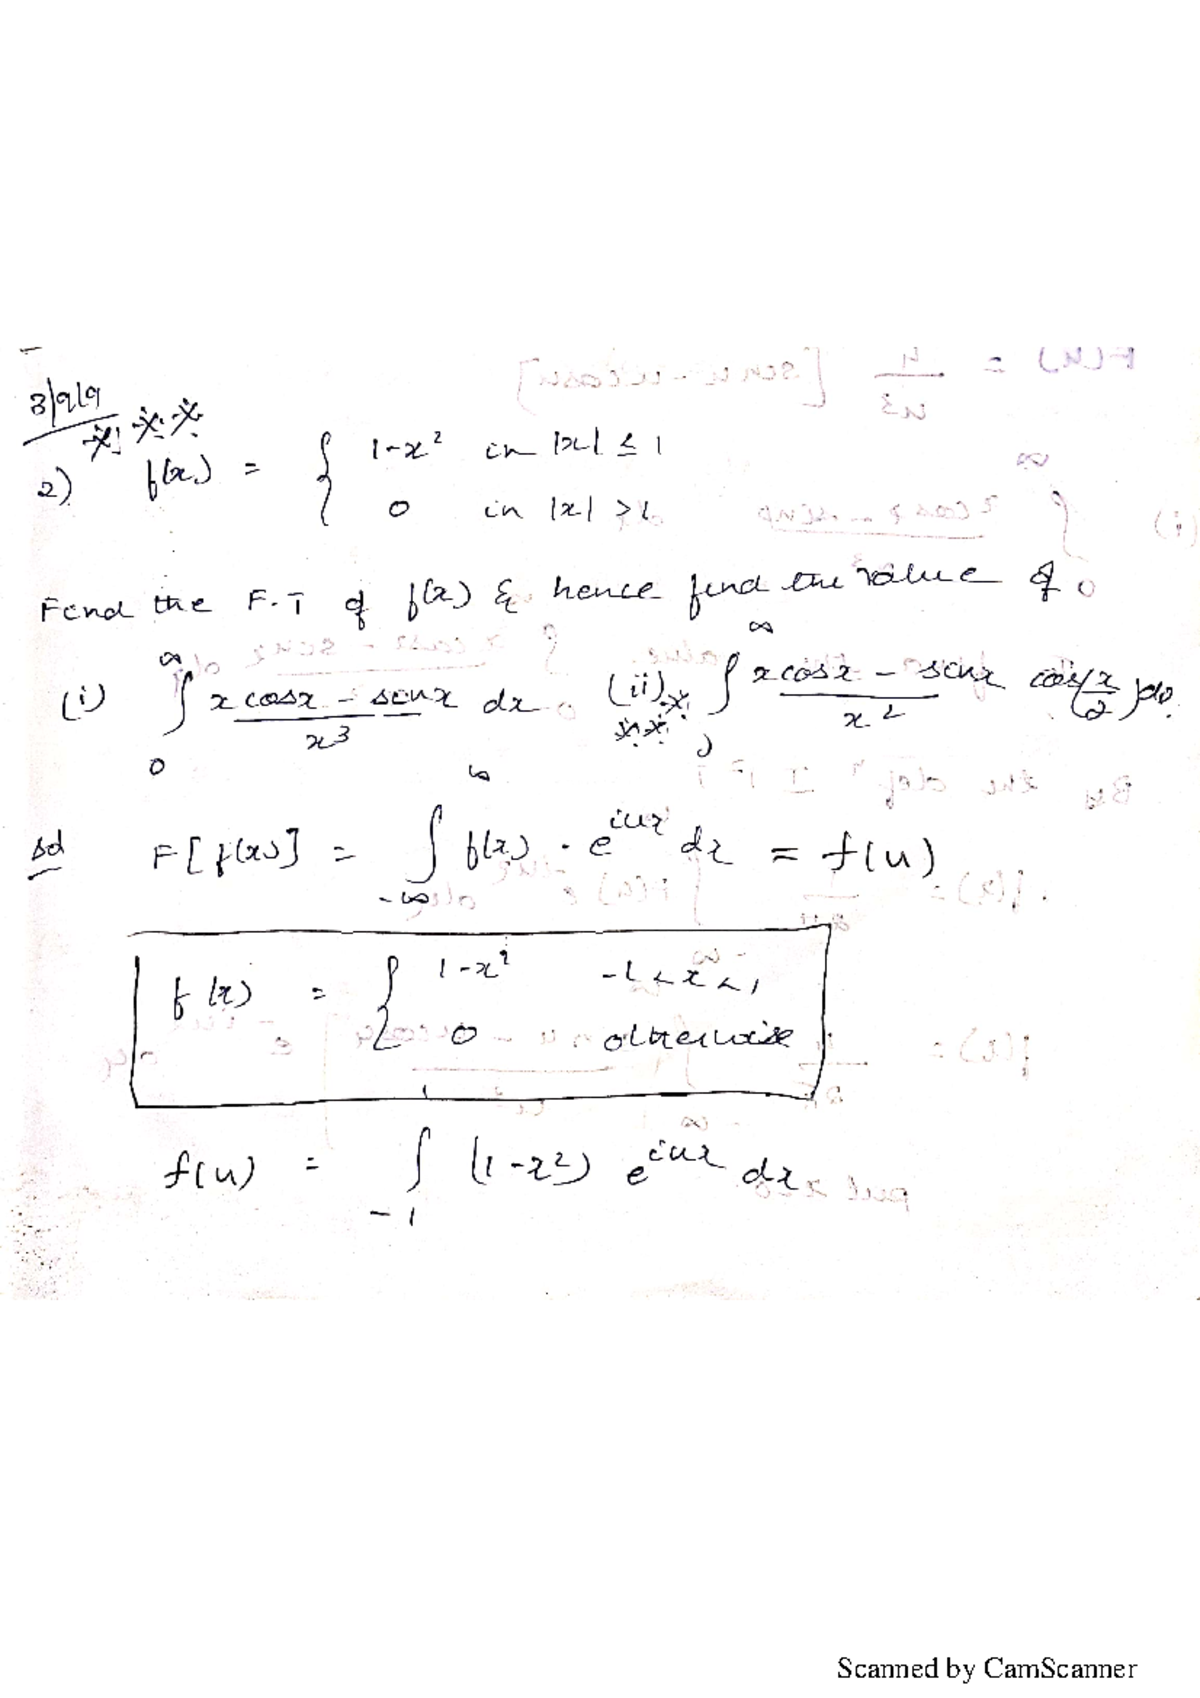 3/9/19
2) f(x) = { 1-x² in |x| ≤ 1
0 in |x| > 1
Find the F.T of f(x) & hence find the value of
(i) ∫₀^∞ x cosx - sinx / x³ dx (ii) ∫₀^∞ x cosx - sinx / x² cos(x/2) dx
Sol F[f(x)] = ∫_{-∞}^{∞} f(x) . e^{iux} dx = f(u)
f(x) = { 1-x² -1 < x < 1
0 otherwise
f(u) = ∫_{-1}^{1} (1-x²) e^{iux} dx
Scanned by CamScanner